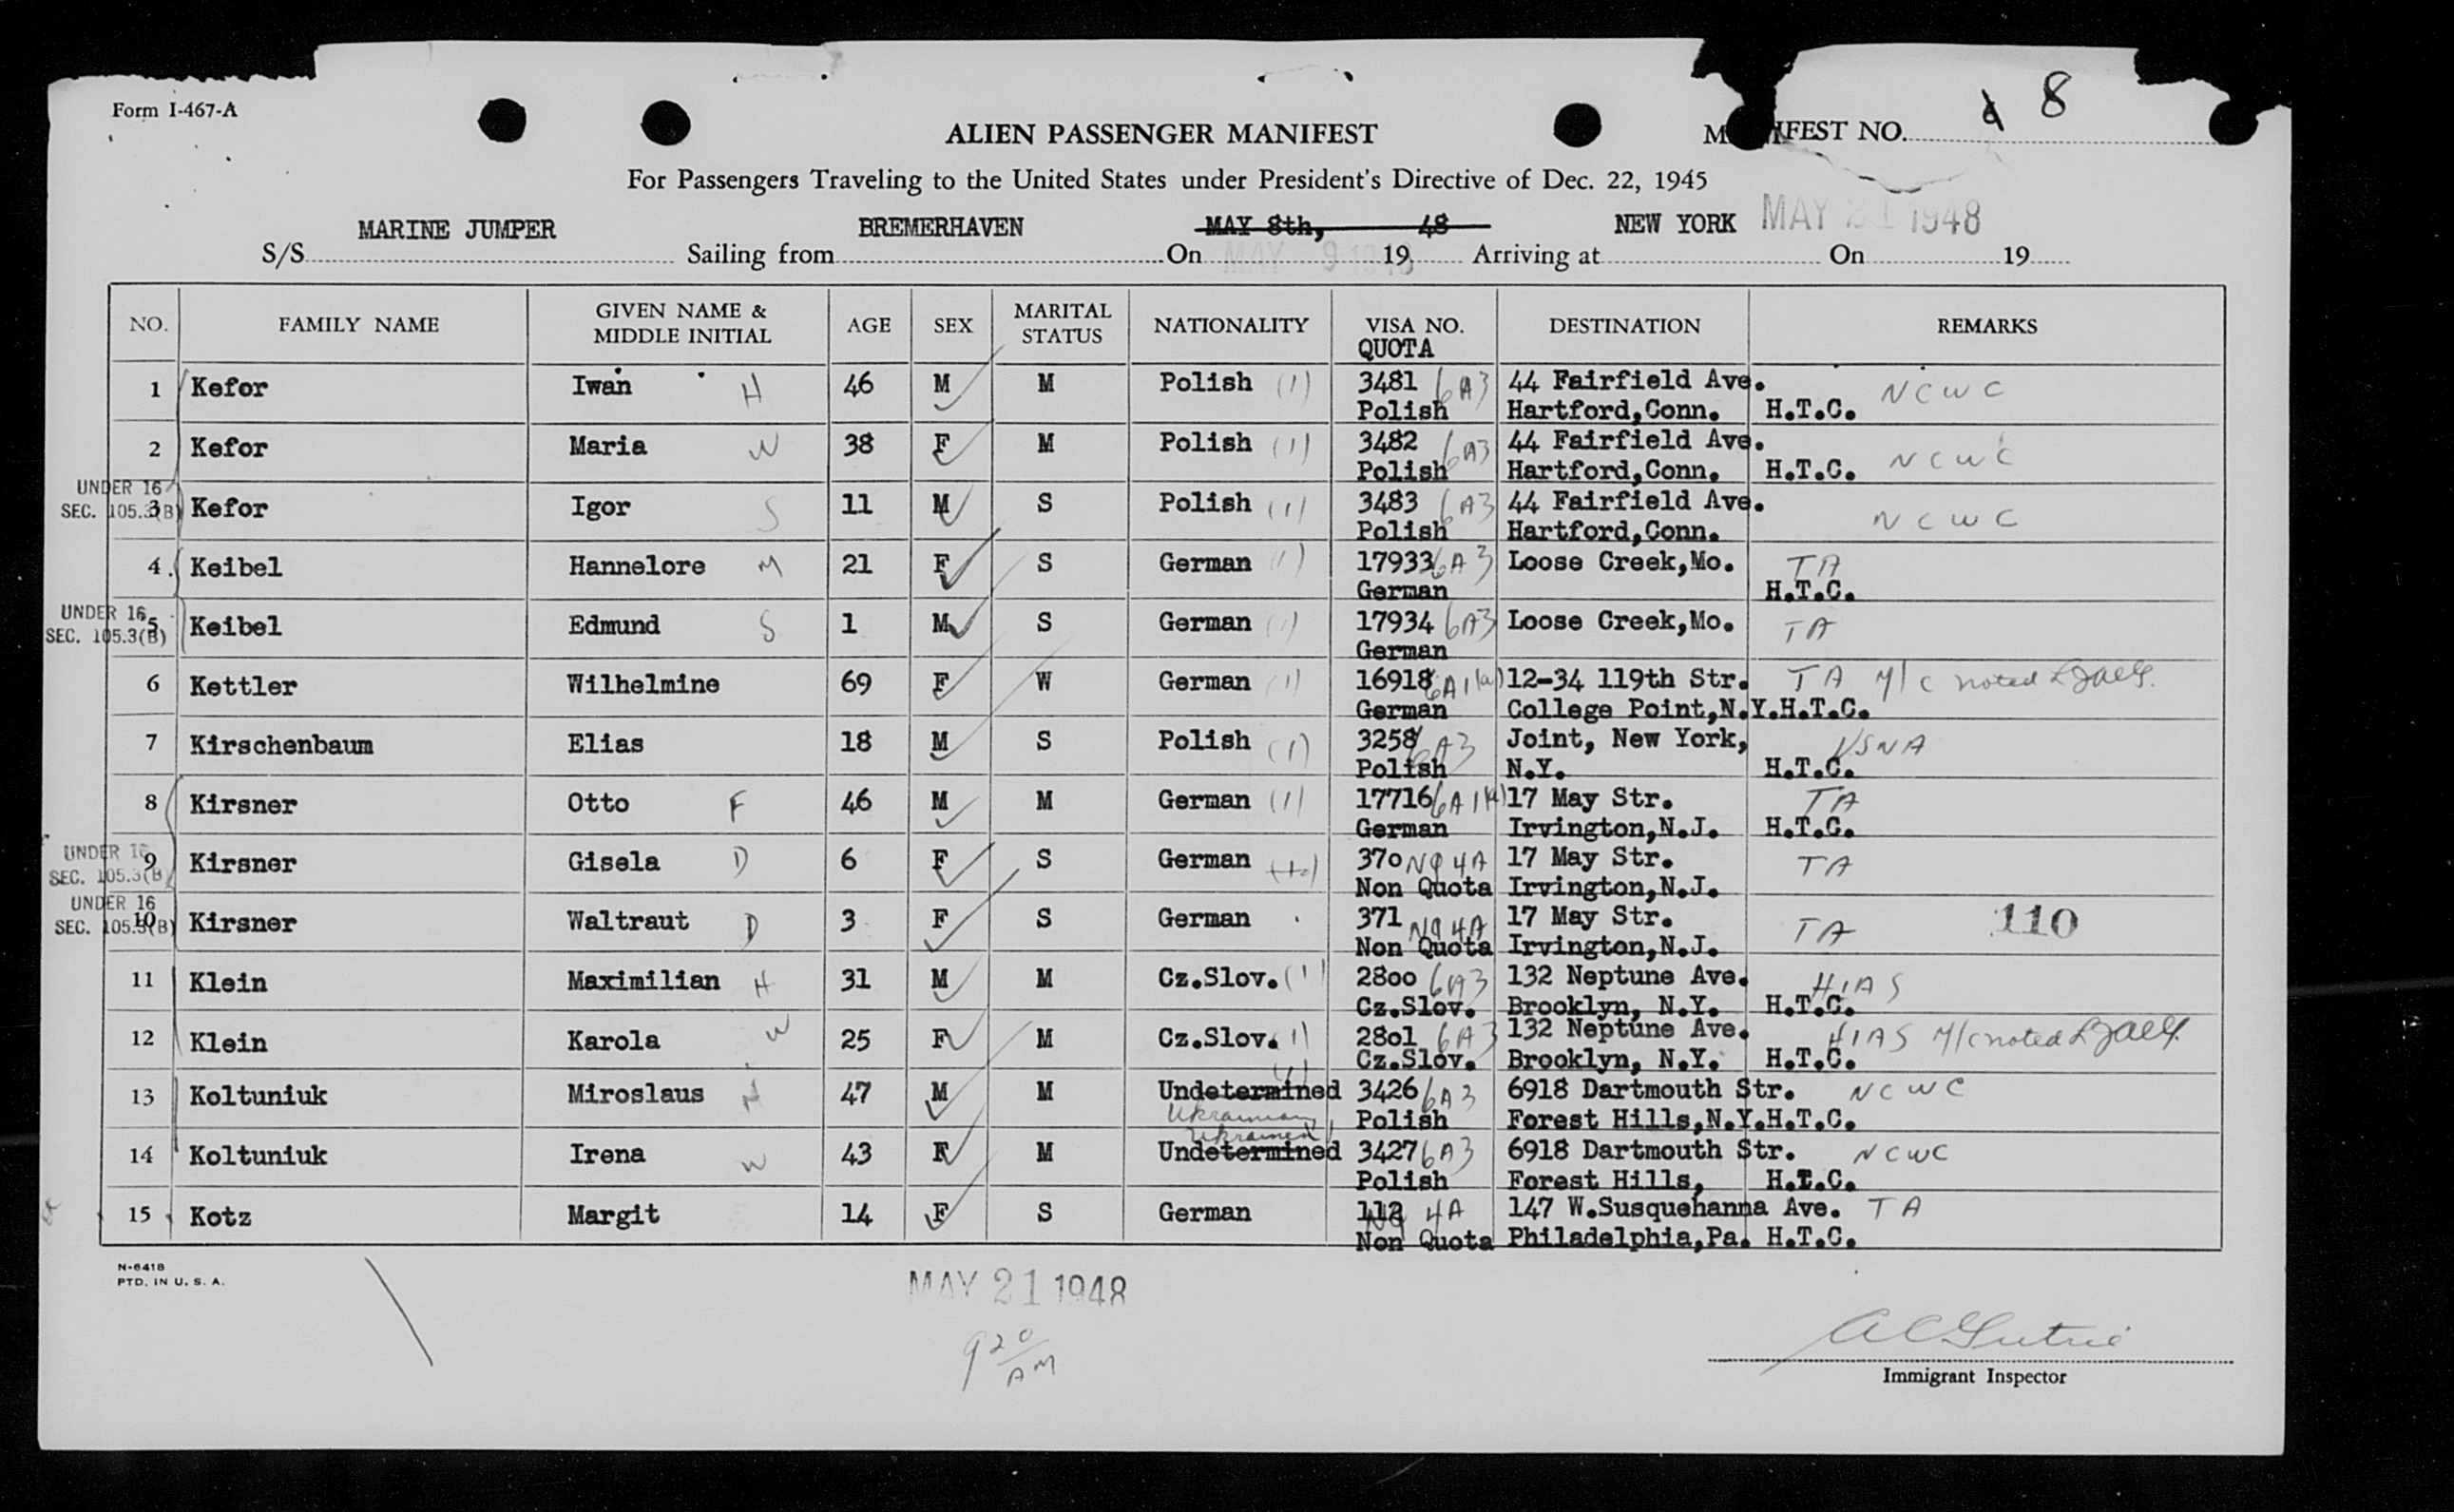 Form I-467-A
8
ALIEN PASSENGER MANIFEST
MANIFEST NO.
For Passengers Traveling to the United States under President's Directive of Dec. 22, 1945
MARINE JUMPER BREMERHAVEN MAY 8th, 48 NEW YORK MAY 21 1948
S/S Sailing from On MAY 9 1948 19 Arriving at On 19
NO. FAMILY NAME GIVEN NAME & MIDDLE INITIAL AGE SEX MARITAL STATUS NATIONALITY VISA NO. QUOTA DESTINATION REMARKS
1 Kefor Iwan H 46 M M Polish (1) 3481 6A3 44 Fairfield Ave. NCWC
Polish Hartford,Conn. H.T.C.
2 Kefor Maria W 38 F M Polish (1) 3482 6A3 44 Fairfield Ave. NCWC
Polish Hartford,Conn. H.T.C.
UNDER 16
SEC. 105.3(B)
3 Kefor Igor S 11 M S Polish (1) 3483 6A3 44 Fairfield Ave. NCWC
Polish Hartford,Conn.
4 Keibel Hannelore M 21 F S German (1) 17933 6A3 Loose Creek,Mo. TA
German H.T.C.
UNDER 16
SEC. 105.3(B)
5 Keibel Edmund S 1 M S German (1) 17934 6A3 Loose Creek,Mo. TA
German
6 Kettler Wilhelmine 69 F W German (1) 16918 6A1(a) 12-34 119th Str. TA M/c noted
German College Point,N.Y.H.T.C.
7 Kirschenbaum Elias 18 M S Polish (1) 3258 6A3 Joint, New York, USNA
Polish N.Y. H.T.C.
8 Kirsner Otto F 46 M M German (1) 17716 6A1(a) 17 May Str. TA
German Irvington,N.J. H.T.C.
UNDER 16
SEC. 105.3(B)
9 Kirsner Gisela D 6 F S German 370 NQ 4A 17 May Str. TA
Non Quota Irvington,N.J.
UNDER 16
SEC. 105.3(B)
10 Kirsner Waltraut D 3 F S German 371 NQ 4A 17 May Str. TA 110
Non Quota Irvington,N.J.
11 Klein Maximilian H 31 M M Cz.Slov. (1) 2800 6A3 132 Neptune Ave. HIAS
Cz.Slov. Brooklyn, N.Y. H.T.C.
12 Klein Karola W 25 F M Cz.Slov. (1) 2801 6A3 132 Neptune Ave. HIAS M/c noted
Cz.Slov. Brooklyn, N.Y. H.T.C.
13 Koltuniuk Miroslaus H 47 M M Undetermined (1) 3426 6A3 6918 Dartmouth Str. NCWC
Ukrainian Polish Forest Hills,N.Y.H.T.C.
14 Koltuniuk Irena W 43 F M Undetermined 3427 6A3 6918 Dartmouth Str. NCWC
Polish Forest Hills, H.T.C.
15 Kotz Margit 14 F S German 112 NQ 4A 147 W.Susquehanna Ave. TA
Non Quota Philadelphia,Pa. H.T.C.
N-6418
PTD. IN U. S. A.
MAY 21 1948
9 20 AM
Immigrant Inspector